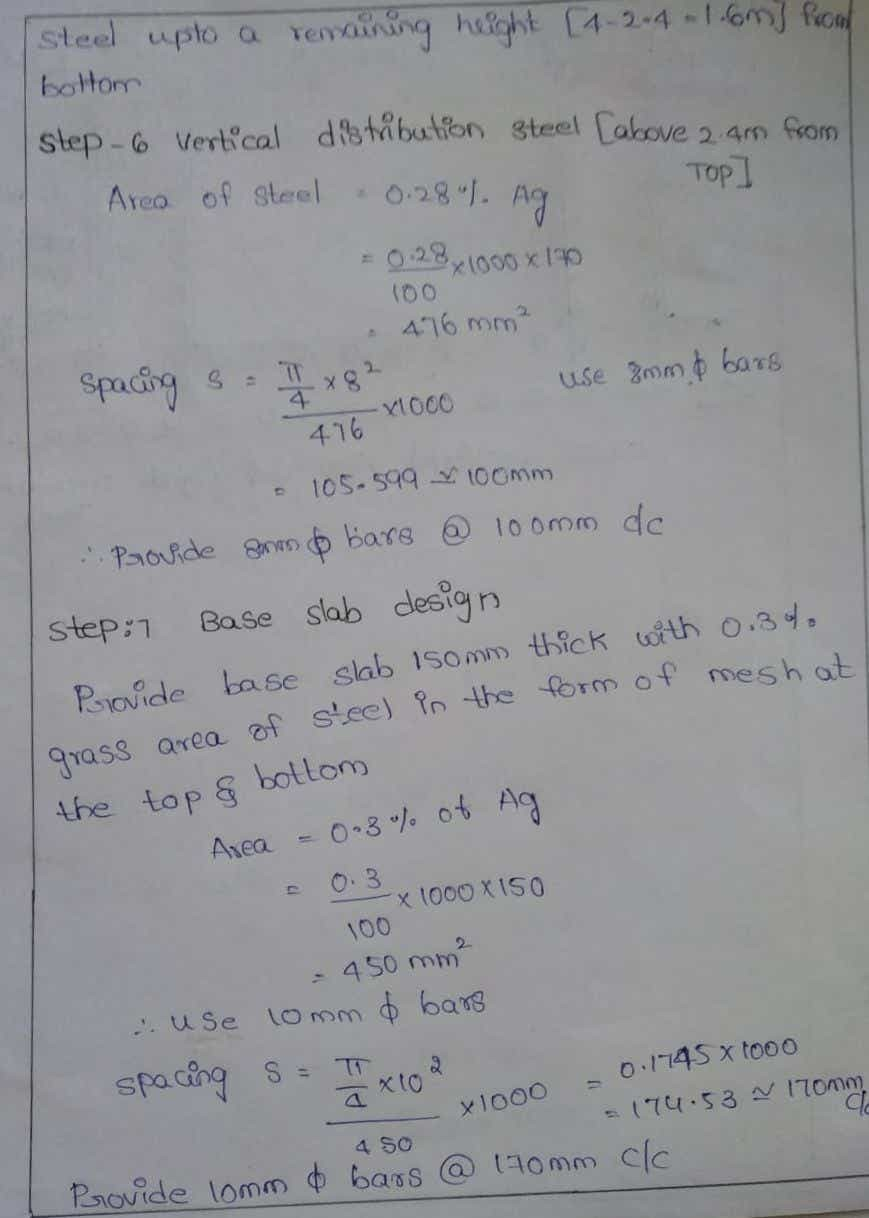 steel upto a remaining height [4-2.4 = 1.6m] from
bottom
Step-6 Vertical distribution steel [above 2.4m from
TOP]
Area of steel = 0.28 % Ag
= 0.28/100 × 1000 × 170
= 476 mm²
Spacing S = π/4 × 8² / 476 × 1000 use 8mm ϕ bars
= 105.599 ≃ 100mm
∴ Provide 8mm ϕ bars @ 100mm c/c
Step:7 Base slab design
Provide base slab 150mm thick with 0.3%
grass area of steel in the form of mesh at
the top & bottom
Area = 0.3% of Ag
= 0.3/100 × 1000 × 150
= 450 mm²
∴ use 10mm ϕ bars
spacing S = π/4 × 10² / 450 × 1000 = 0.1745 × 1000
= 174.53 ≃ 170mm c/c
Provide 10mm ϕ bars @ 170mm c/c